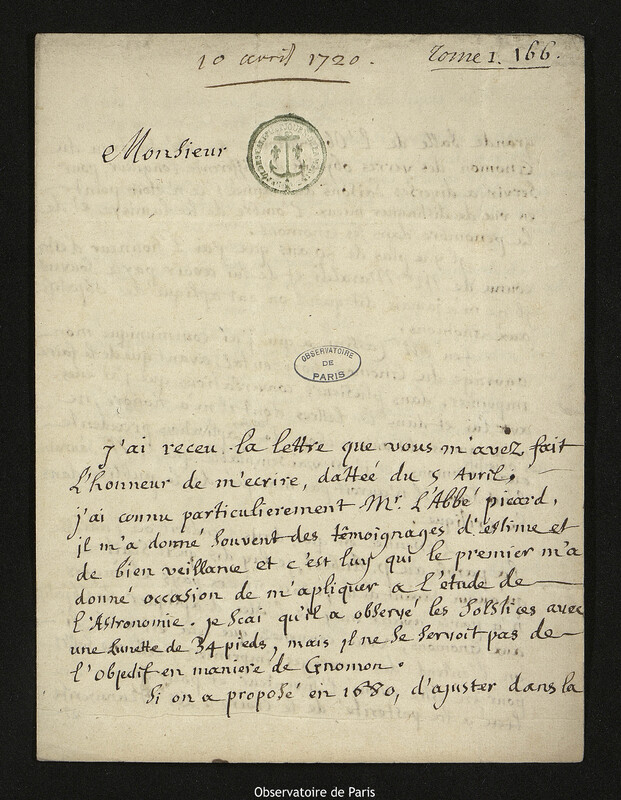 10 avril 1720. Tome 1. 166.
Monsieur
OBSERVATOIRE
DE
PARIS
j'ai receu la lettre que vous m'avez fait
l'honneur de m'ecrire, dattéé du 5 Avril,
j'ai connu particulierement Mr. L'Abbé picard,
il m'a donné souvent des témoignages d'estime et
de bien veillance et c'est luy qui le premier m'a
donné occasion de m'apliquer a l'étude de
l'Astronomie. je scai qu'il a observé les Solstices avec
une lunette de 34 pieds, mais il ne se servoit pas de
l'objectif en maniere de Gnomon.
Si on a proposé en 1680, d'ajuster dans la
Observatoire de Paris